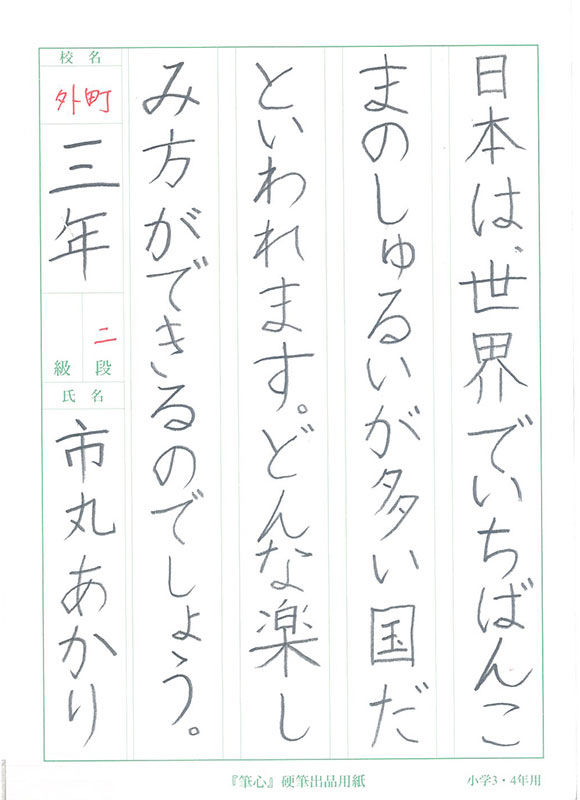 日本は、世界でいちばんこ
まのしゅるいが多い国だ
といわれます。どんな楽し
み方ができるのでしょう。
校名
外町
三年
二
級 段
氏名
市丸あかり
『筆心』硬筆出品用紙
小学3・4年用